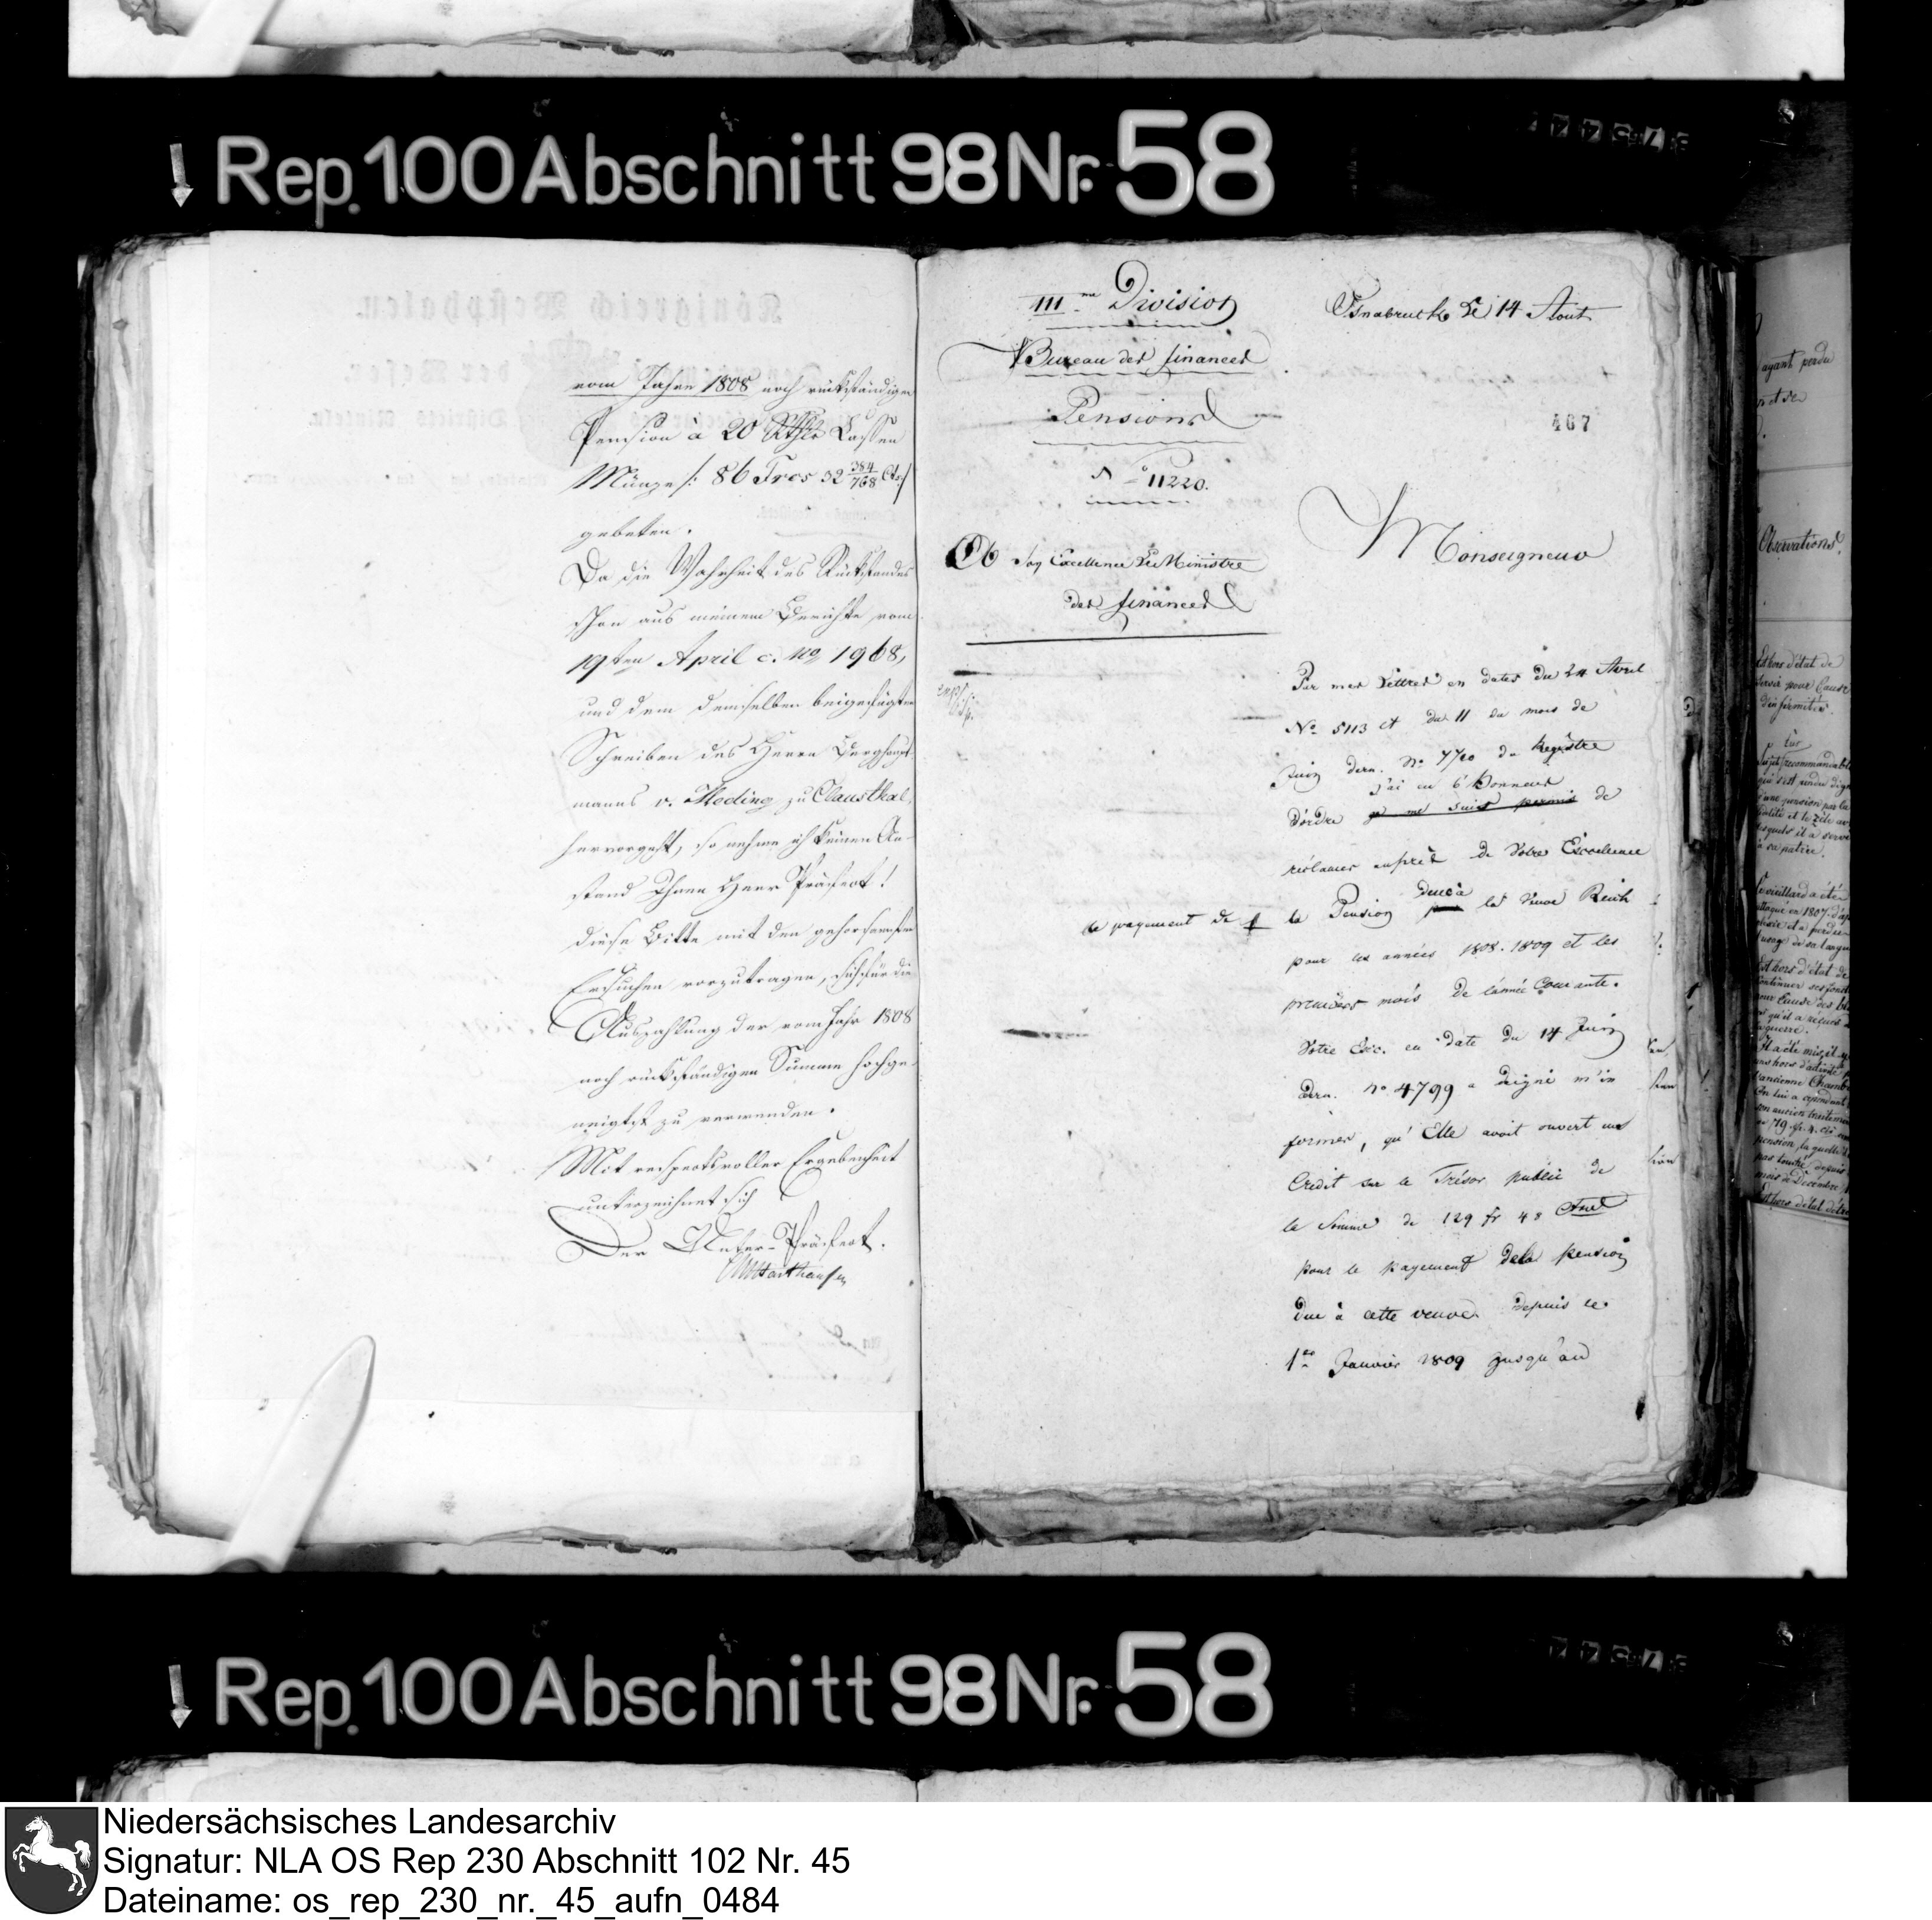 Rep. 100 Abschnitt 98 Nr. 58
vom Jahre 1808 noch rückständige
Pension à 20 Rthlr Cassen
Münze /: 86 Frcs 32 384/768 Cts :/
gebeten.
Da die Wahrheit des Rückstandes
schon aus meinem Berichte vom
19ten April c. No 1968,
und dem demselben beigefügten
Schreiben des Herrn Berghaupt-
manns v. Meding zu Clausthal,
hervorgeht, so nehme ich keinen An-
stand Ihnen Herr Präfect!
diese Bitte mit den gehorsamsten
Ersuchen vorzutragen, sich für die
Auszahlung der vom Jahr 1808
noch rückständigen Summe hochge-
neigtest zu verwenden.
Mit respectsvoller Ergebenheit
unterzeichnet sich
Der Unter-Präfect.
III me Division
Bureau des finances
Pensions
No 11220.
A Son Excellence Le Ministre
des finances
Osnabruck Le 14 Aout
467
Monseigneur
Par mes Lettres en dates du 24 Avril
No 5113 et du 11 du mois de
Juin dern. No 7720 du Registre
j'ai eu l'honneur
d'ordre je me suis permis de
réclamer auprès de Votre Excellence
due à
le payement de la Pension la Veuve Reich
pour les années 1808. 1809 et les
premiers mois de l'année Courante.
Votre Exc. en date du 14 Juin
dern. No 4799 a daigné m'in
former, qu'Elle avait ouvert un
Credit sur le Trésor public de
la Somme de 129 fr 48 Ctmes
pour le payement de la pension
due à cette veuve depuis le
1er Janvier 1809 jusqu'au
ayant perdu
Observations.
Est hors d'état de
servir pour Cause
d'infirmités.
Rep. 100 Abschnitt 98 Nr. 58
Niedersächsisches Landesarchiv
Signatur: NLA OS Rep 230 Abschnitt 102 Nr. 45
Dateiname: os_rep_230_nr._45_aufn_0484